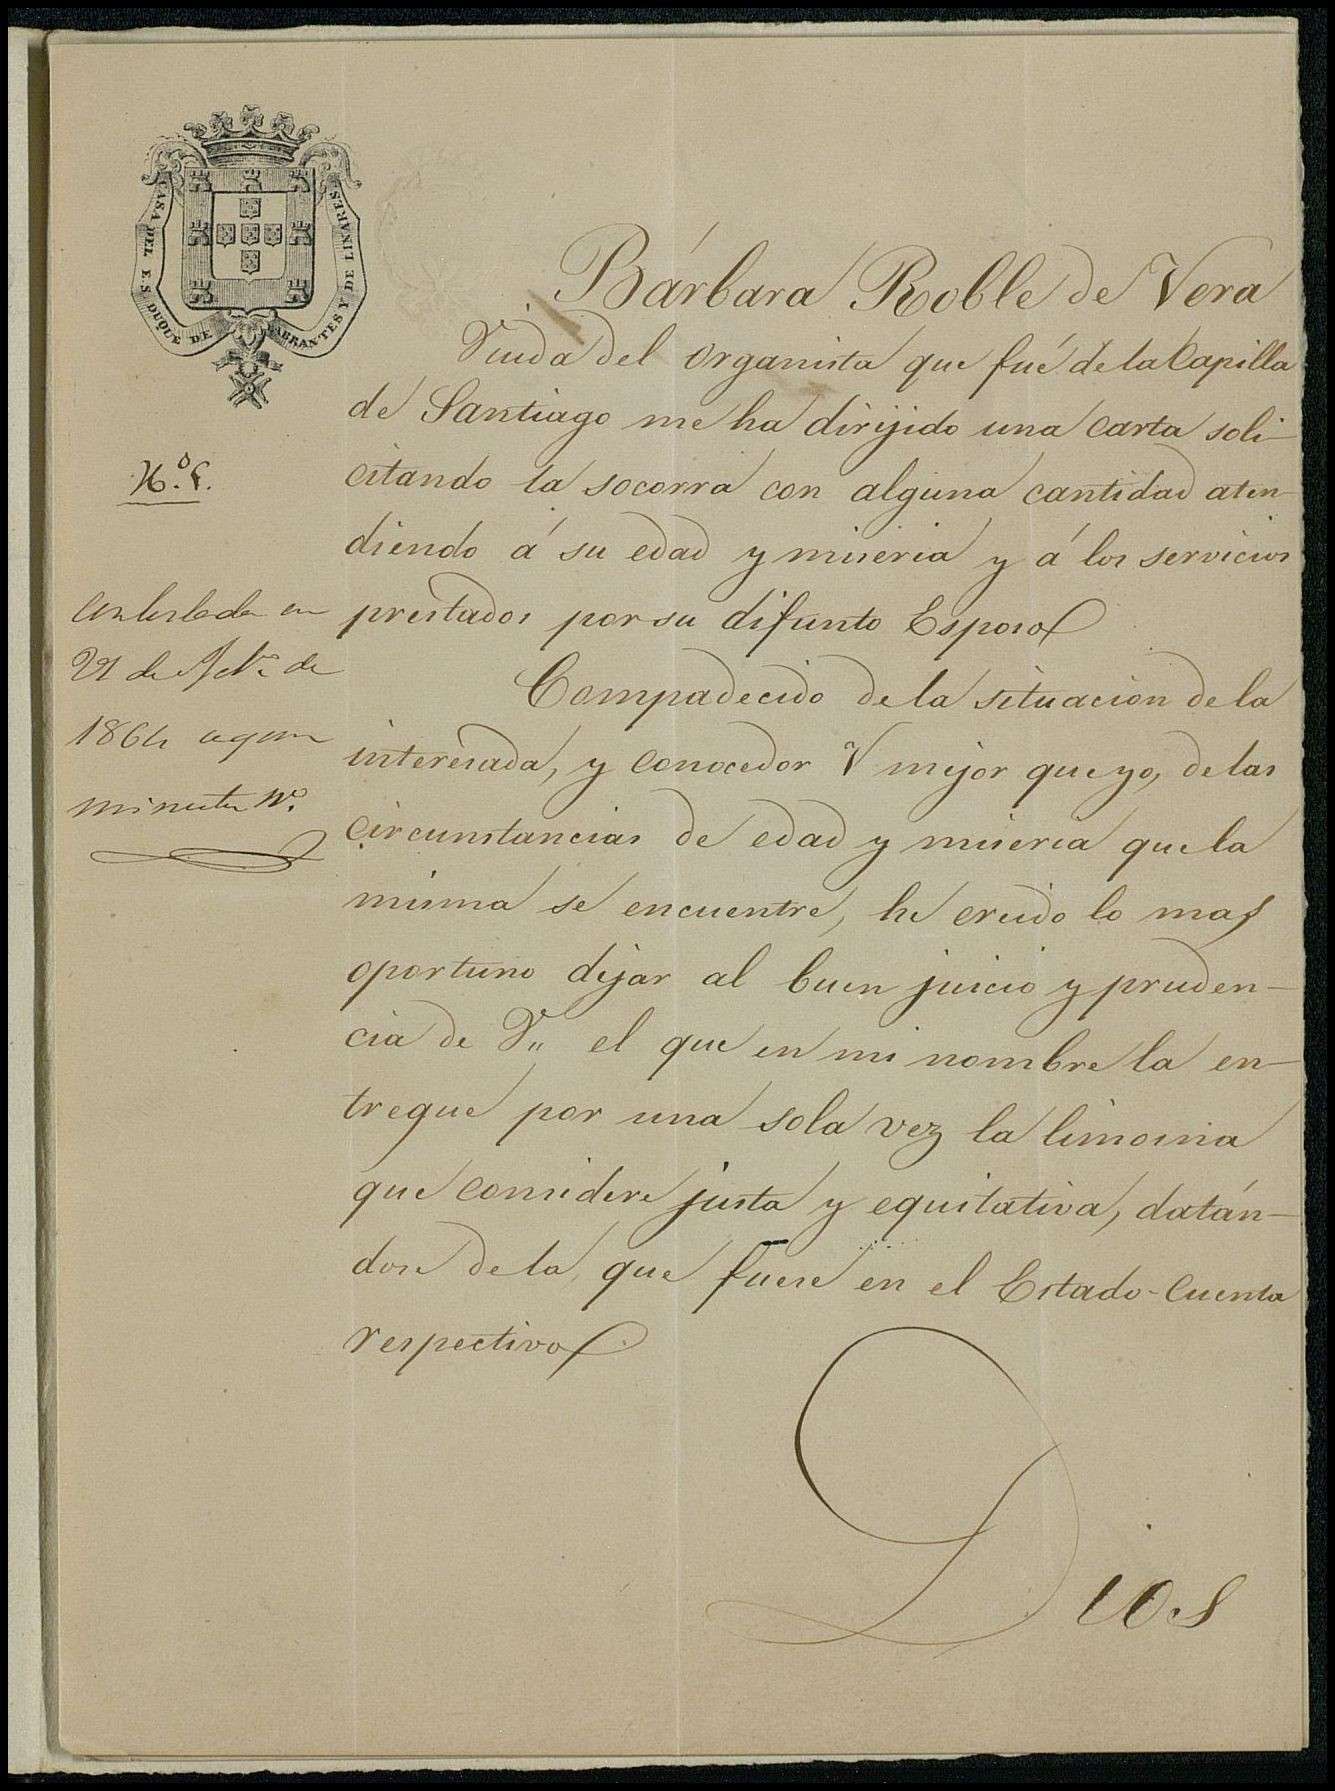 CASA DEL E.S. DUQUE DE ABRANTES Y DE LINARES
Bárbara Roble de Vera
Viuda del organista que fué de la Capilla
de Santiago me ha dirijido una carta soli-
citando la socorra con alguna cantidad aten-
diendo á su edad y miseria y á los servicios
prestados por su difunto Esposo
Compadecido de la situacion de la
interesada, y conocedor V mejor que yo, de las
circunstancias de edad y miseria que la
misma se encuentre, he creido lo mas
oportuno dejar al buen juicio y pruden-
cia de V,, el que en mi nombre la en-
tregue por una sola vez la limosna
que considere justa y equitativa, datán-
dose de la que fuese en el Estado-Cuenta
respectivo
Dios
N.º
Contestada en
de
1864 segun
minuta Nº